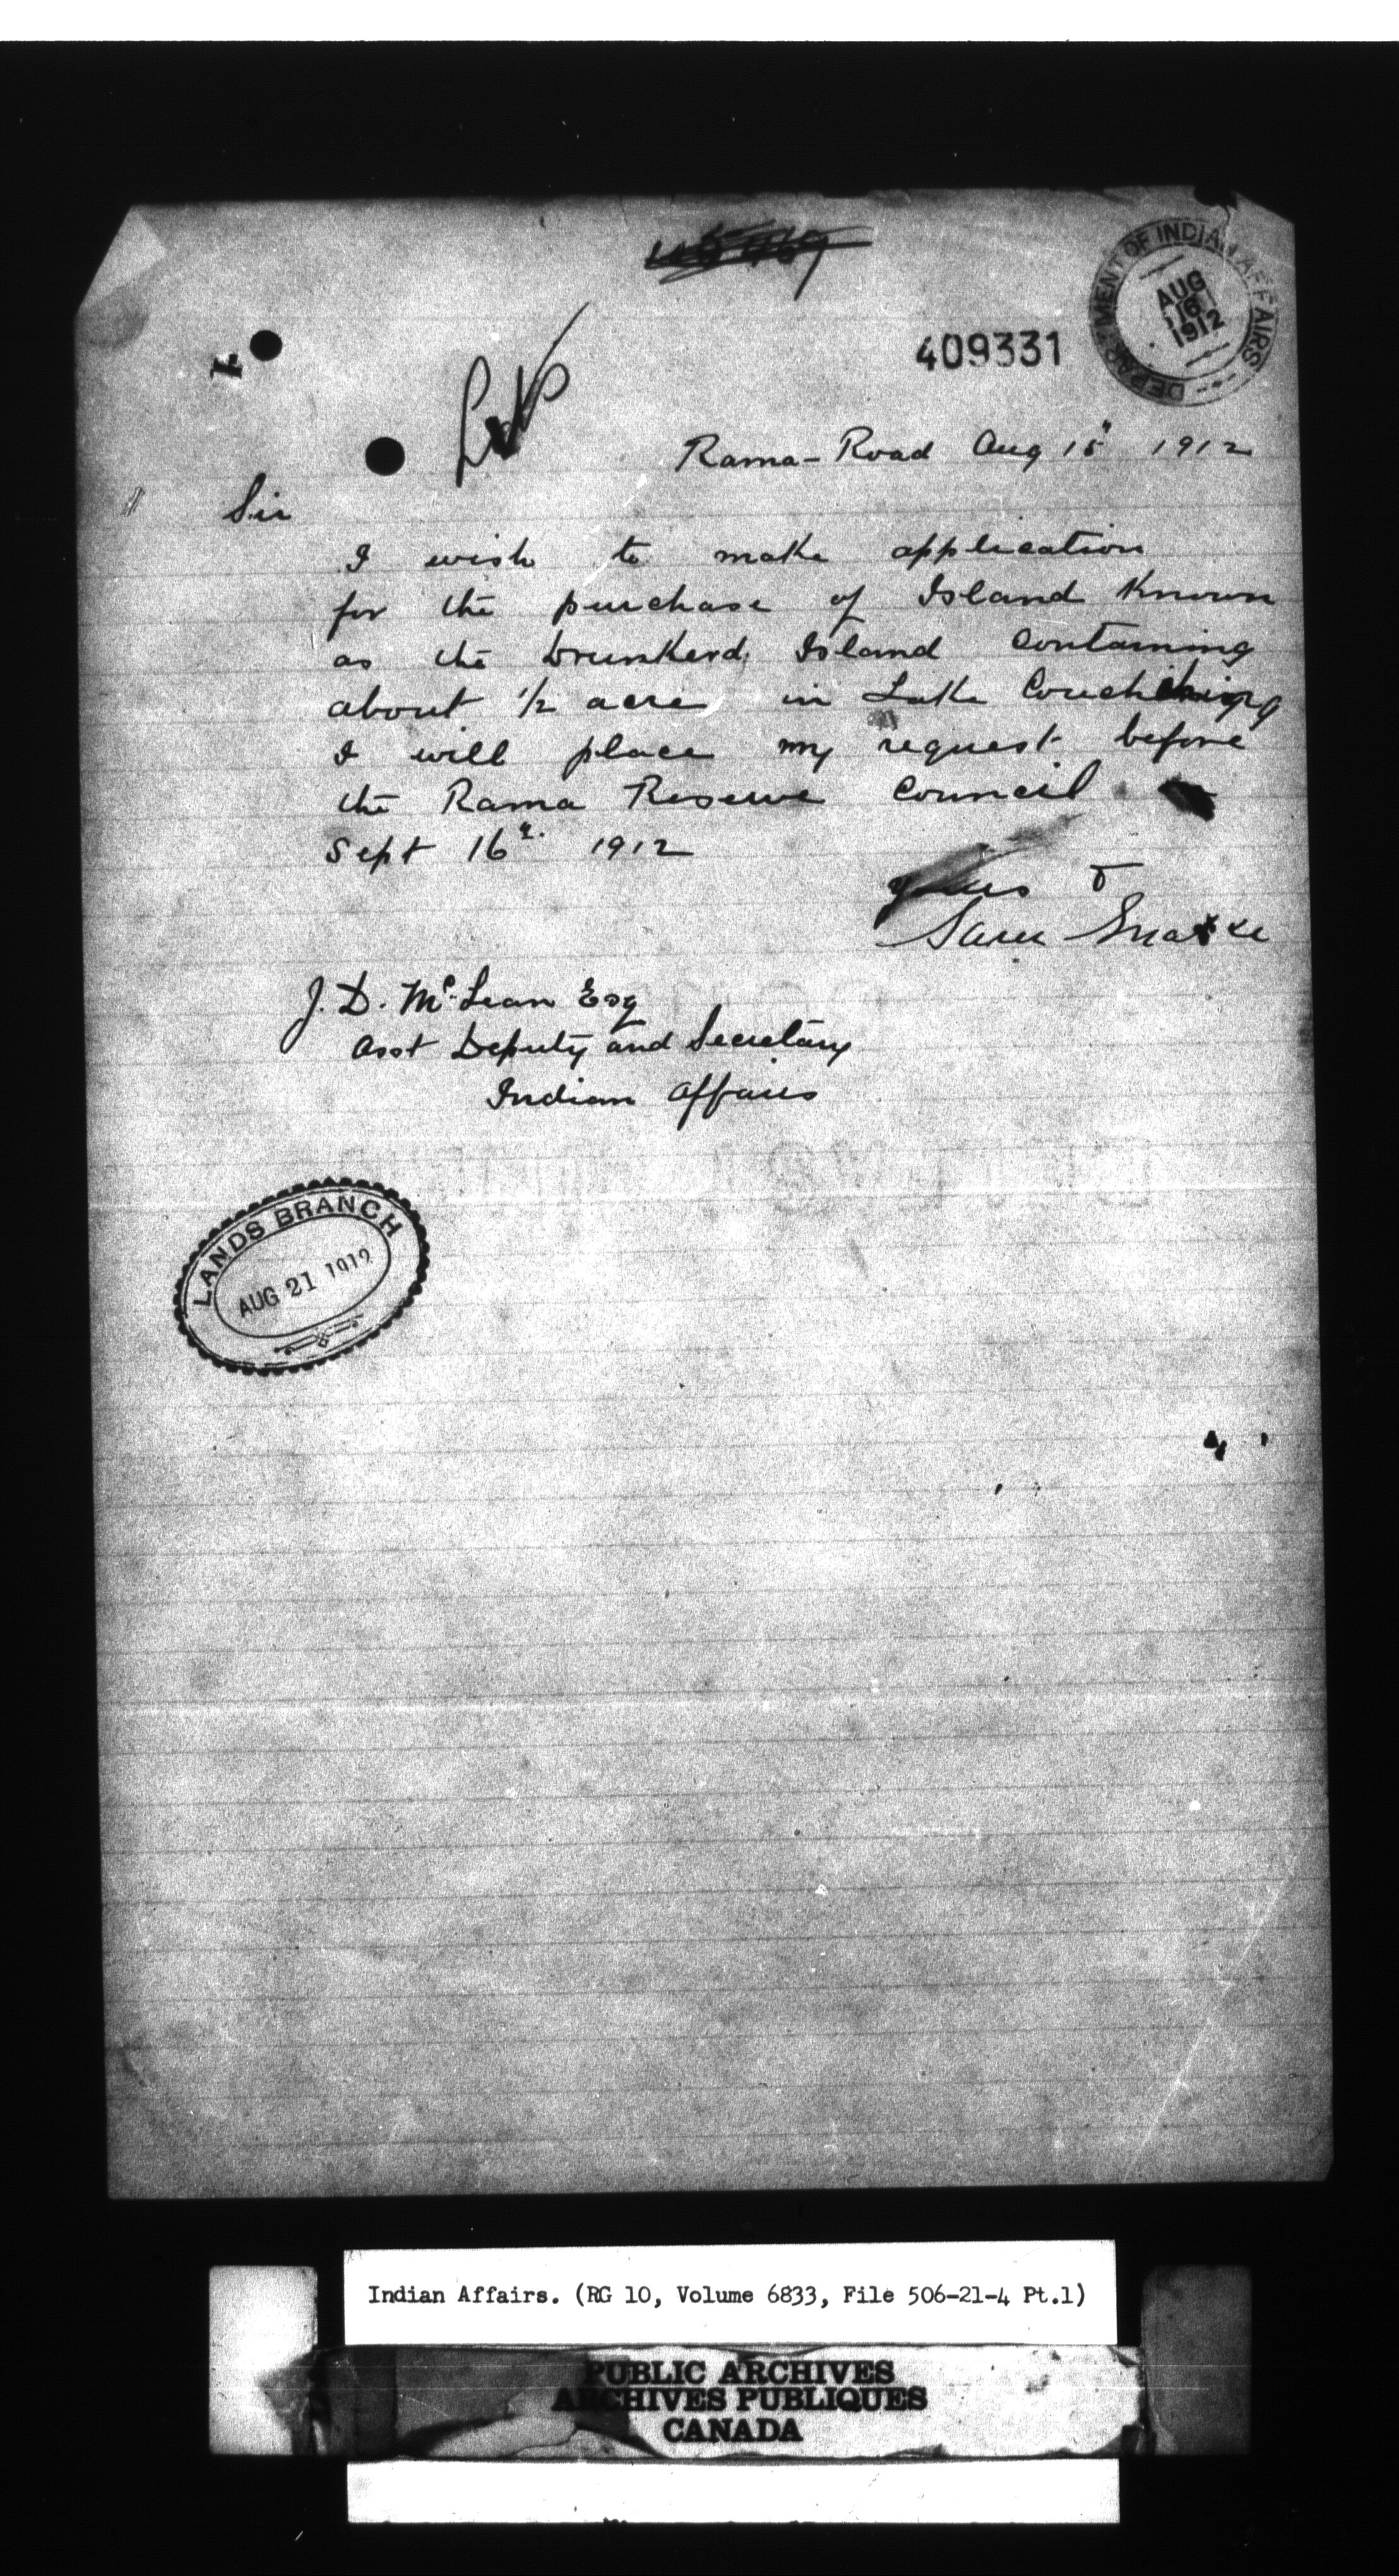 409331
DEPARTMENT OF INDIAN AFFAIRS
AUG
1912
Rama-Road Aug 15" 1912
Sir
I wish to make application
for the purchase of Island Known
as the Drunkerd Island containing
about 1/2 acre in Lake Couchiching
I will place my request before
the Rama Reserve Council
Sept 16th 1912
yours
Sam Snake
J. D. McLean Esq
Asst Deputy and Secretary
Indian Affairs
LANDS BRANCH
AUG 21 1912
Indian Affairs. (RG 10, Volume 6833, File 506-21-4 Pt.1)
PUBLIC ARCHIVES
ARCHIVES PUBLIQUES
CANADA